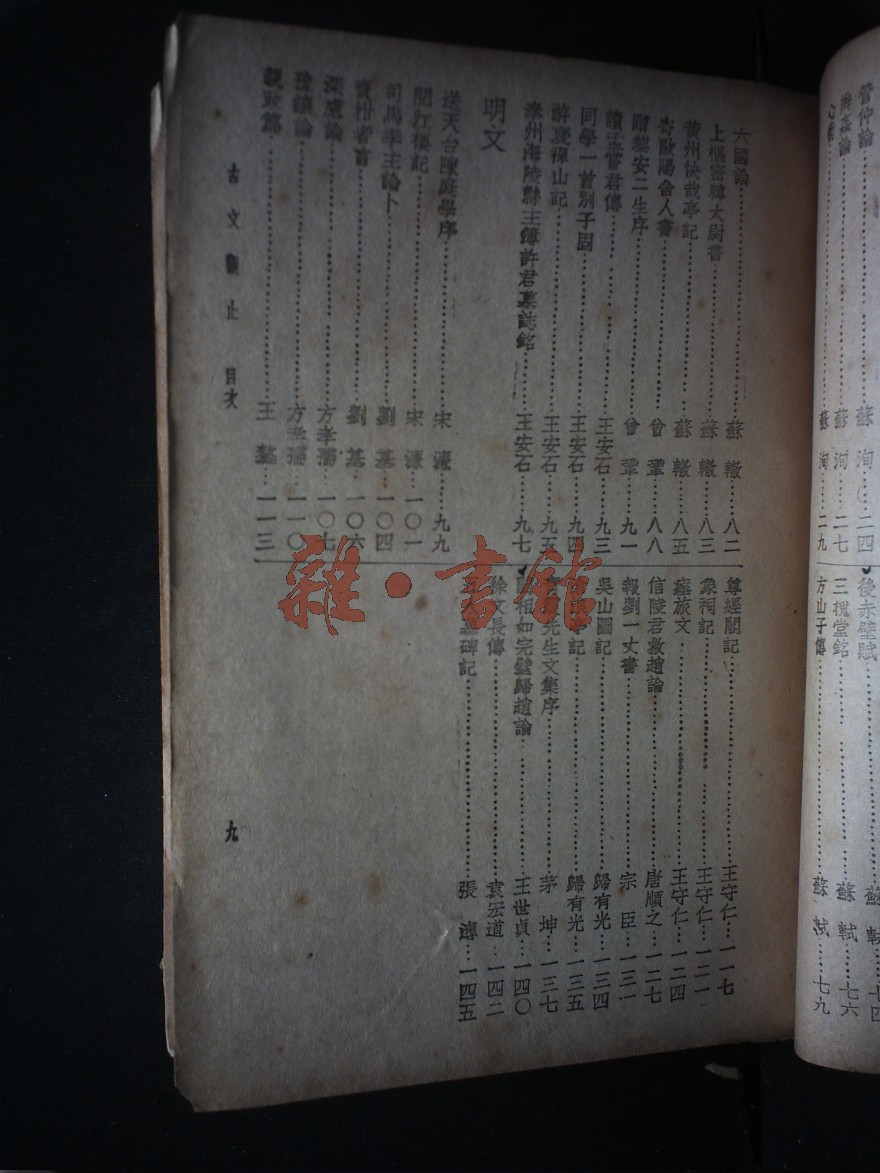 管仲論……蘇洵…二四
辨姦論……蘇洵…二七
心術……蘇洵…二九
後赤壁賦……蘇軾…七四
三槐堂銘……蘇軾…七六
方山子傳……蘇軾…七九
六國論……蘇轍…八二
上樞密韓太尉書……蘇轍…八三
黃州快哉亭記……蘇轍…八五
寄歐陽舍人書……曾鞏…八八
贈黎安二生序……曾鞏…九一
讀孟嘗君傳……王安石…九三
同學一首別子固……王安石…九四
游褒禪山記……王安石…九五
泰州海陵縣主簿許君墓誌銘……王安石…九七
明文
送天台陳庭學序……宋濂…九九
閱江樓記……宋濂…一〇一
司馬季主論卜……劉基…一〇四
賣柑者言……劉基…一〇六
深慮論……方孝孺…一〇七
豫讓論……方孝孺…一一〇
親政篇……王鏊…一一三
尊經閣記……王守仁…一一七
象祠記……王守仁…一二一
瘞旅文……王守仁…一二四
信陵君救趙論……唐順之…一二七
報劉一丈書……宗臣…一三一
吳山圖記……歸有光…一三四
亭記……歸有光…一三五
先生文集序……茅坤…一三七
相如完璧歸趙論……王世貞…一四〇
徐文長傳……袁宏道…一四二
五人墓碑記……張溥…一四五
古文觀止 目次
九
雜·書館